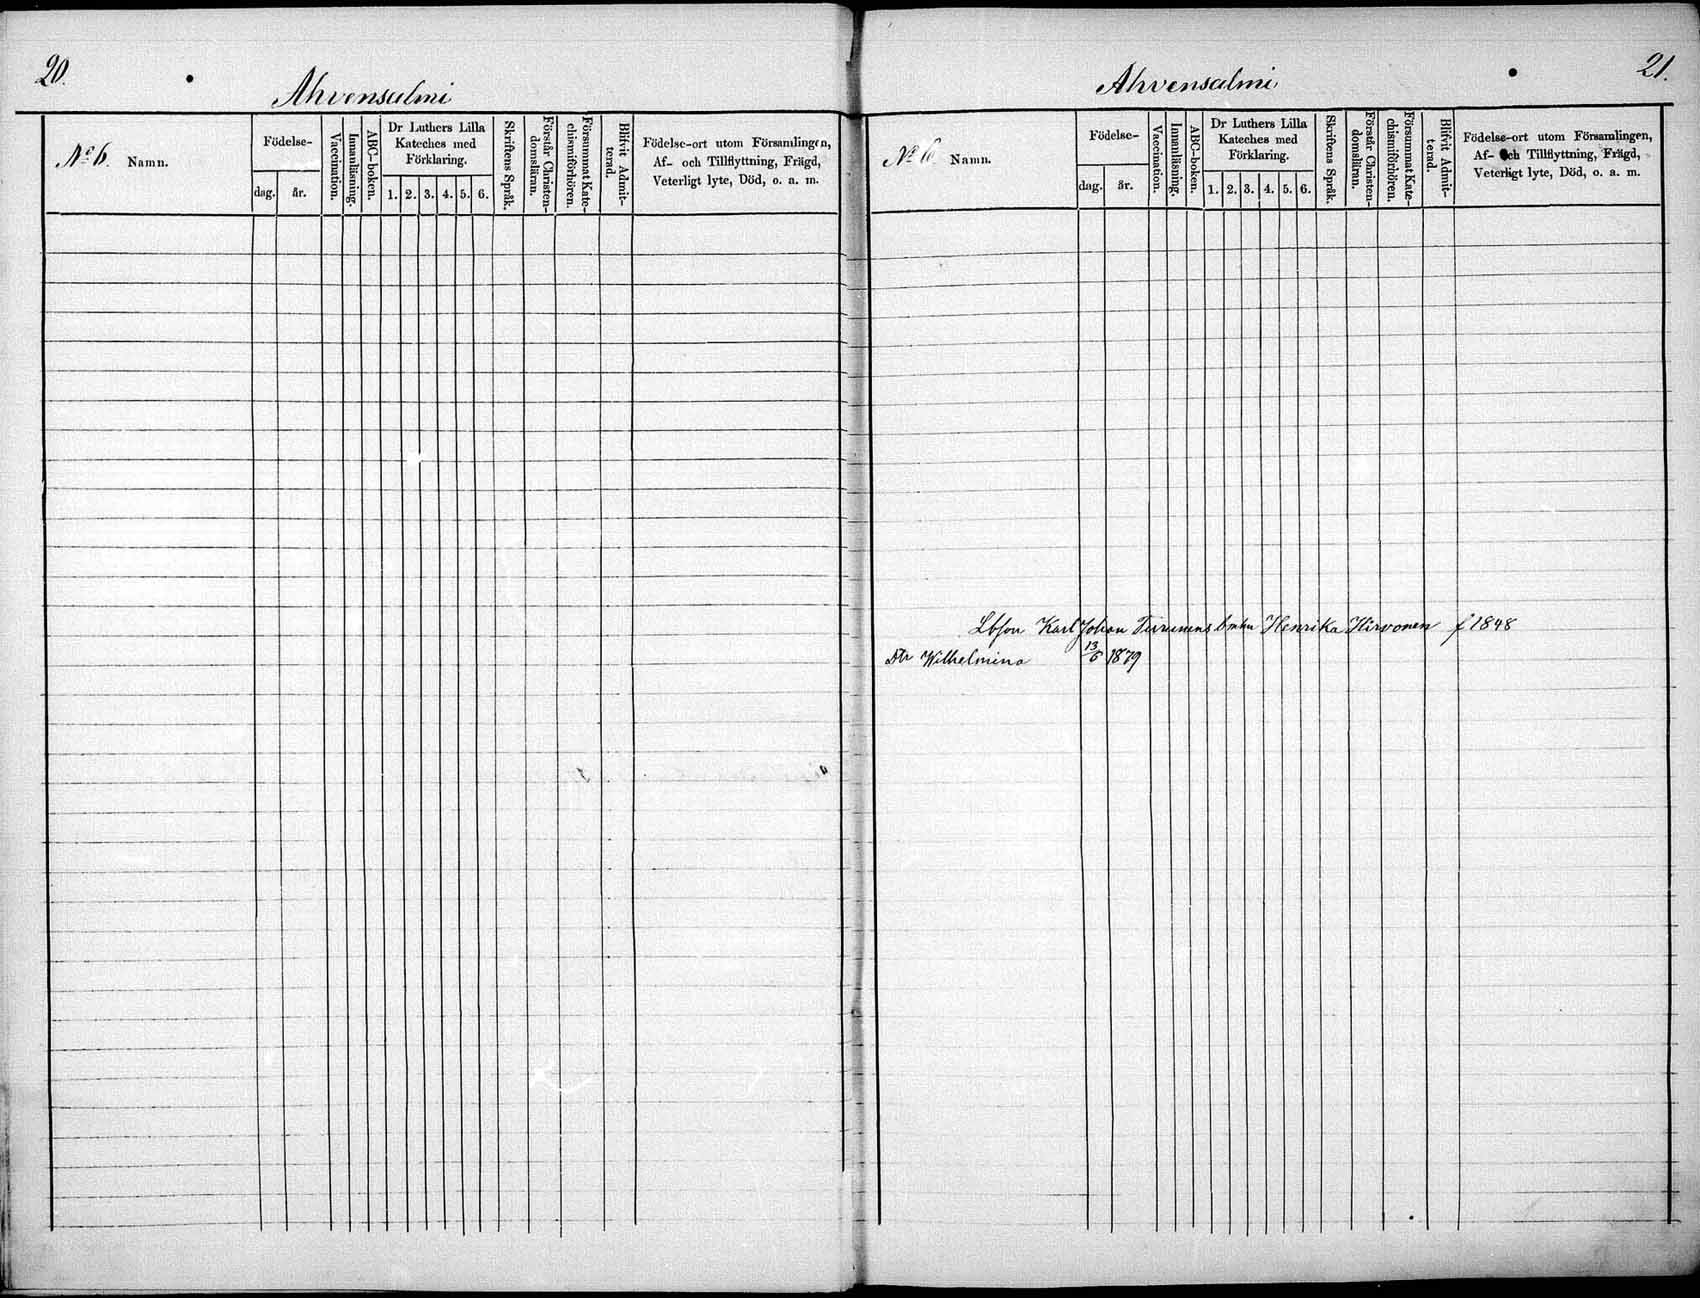 20.
Ahvensalmi
No 6. Namn.
Födelse-
dag.
år.
Vaccination.
Innanläsning.
ABC-boken.
Dr Luthers Lilla
Kateches med
Förklaring.
1. 2. 3. 4. 5. 6.
Skriftens Språk.
Förstår Christen-
domsläran.
Försummat Kate-
chismiförhören.
Blifvit Admit-
terad.
Födelse-ort utom Församlingen,
Af- och Tillflyttning, Frägd,
Veterligt lyte, Död, o. a. m.
21.
Ahvensalmi
No 6. Namn.
Födelse-
dag.
år.
Vaccination.
Innanläsning.
ABC-boken.
Dr Luthers Lilla
Kateches med
Förklaring.
1. 2. 3. 4. 5. 6.
Skriftens Språk.
Förstår Christen-
domsläran.
Försummat Kate-
chismiförhören.
Blifvit Admit-
terad.
Födelse-ort utom Församlingen,
Af- och Tillflyttning, Frägd,
Veterligt lyte, Död, o. a. m.
Karl Johan Henrika Hirvonen f 1848
Dtr Wilhelmina 13/6 1879